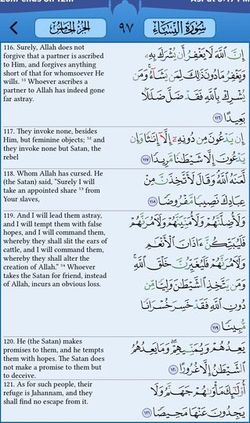 سُورَةُ النِّسَاءِ
٩٧
الجزء الخامس
116. Surely, Allah does not
forgive that a partner is ascribed
to Him, and forgives anything
short of that for whomsoever He
wills. Whoever ascribes a
partner to Allah has indeed gone
far astray.
إِنَّ ٱللَّهَ لَا يَغْفِرُ أَن يُشْرَكَ بِهِۦ
وَيَغْفِرُ مَا دُونَ ذَٰلِكَ لِمَن يَشَآءُ وَمَن
يُشْرِكْ بِٱللَّهِ فَقَدْ ضَلَّ ضَلَٰلًۢا
بَعِيدًا ١١٦
117. They invoke none, besides
Him, but feminine objects; and
they invoke none but Satan, the
rebel
إِن يَدْعُونَ مِن دُونِهِۦٓ إِلَّآ إِنَٰثًا وَإِن
يَدْعُونَ إِلَّا شَيْطَٰنًا مَّرِيدًا ١١٧
118. Whom Allah has cursed. He
(the Satan) said, "Surely I will
take an appointed share from
Your slaves,
لَّعَنَهُ ٱللَّهُ وَقَالَ لَأَتَّخِذَنَّ مِنْ
عِبَادِكَ نَصِيبًا مَّفْرُوضًا ١١٨
119. And I will lead them astray,
and I will tempt them with false
hopes, and I will command them,
whereby they shall slit the ears of
cattle, and I will command them,
whereby they shall alter the
creation of Allah." Whoever
takes the Satan for friend, instead
of Allah, incurs an obvious loss.
وَلَأُضِلَّنَّهُمْ وَلَأُمَنِّيَنَّهُمْ وَلَءَامُرَنَّهُمْ
فَلَيُبَتِّكُنَّ ءَاذَانَ ٱلْأَنْعَٰمِ
وَلَءَامُرَنَّهُمْ فَلَيُغَيِّرُنَّ خَلْقَ ٱللَّهِ
وَمَن يَتَّخِذِ ٱلشَّيْطَٰنَ وَلِيًّا مِّن
دُونِ ٱللَّهِ فَقَدْ خَسِرَ خُسْرَانًا
مُّبِينًا ١١٩
120. He (the Satan) makes
promises to them, and he tempts
them with hopes. The Satan does
not make a promise to them but
to deceive.
يَعِدُهُمْ وَيُمَنِّيهِمْ وَمَا يَعِدُهُمُ
ٱلشَّيْطَٰنُ إِلَّا غُرُورًا ١٢٠
121. As for such people, their
refuge is Jahannam, and they
shall find no escape from it.
أُو۟لَٰٓئِكَ مَأْوَىٰهُمْ جَهَنَّمُ وَلَا
يَجِدُونَ عَنْهَا مَحِيصًا ١٢١